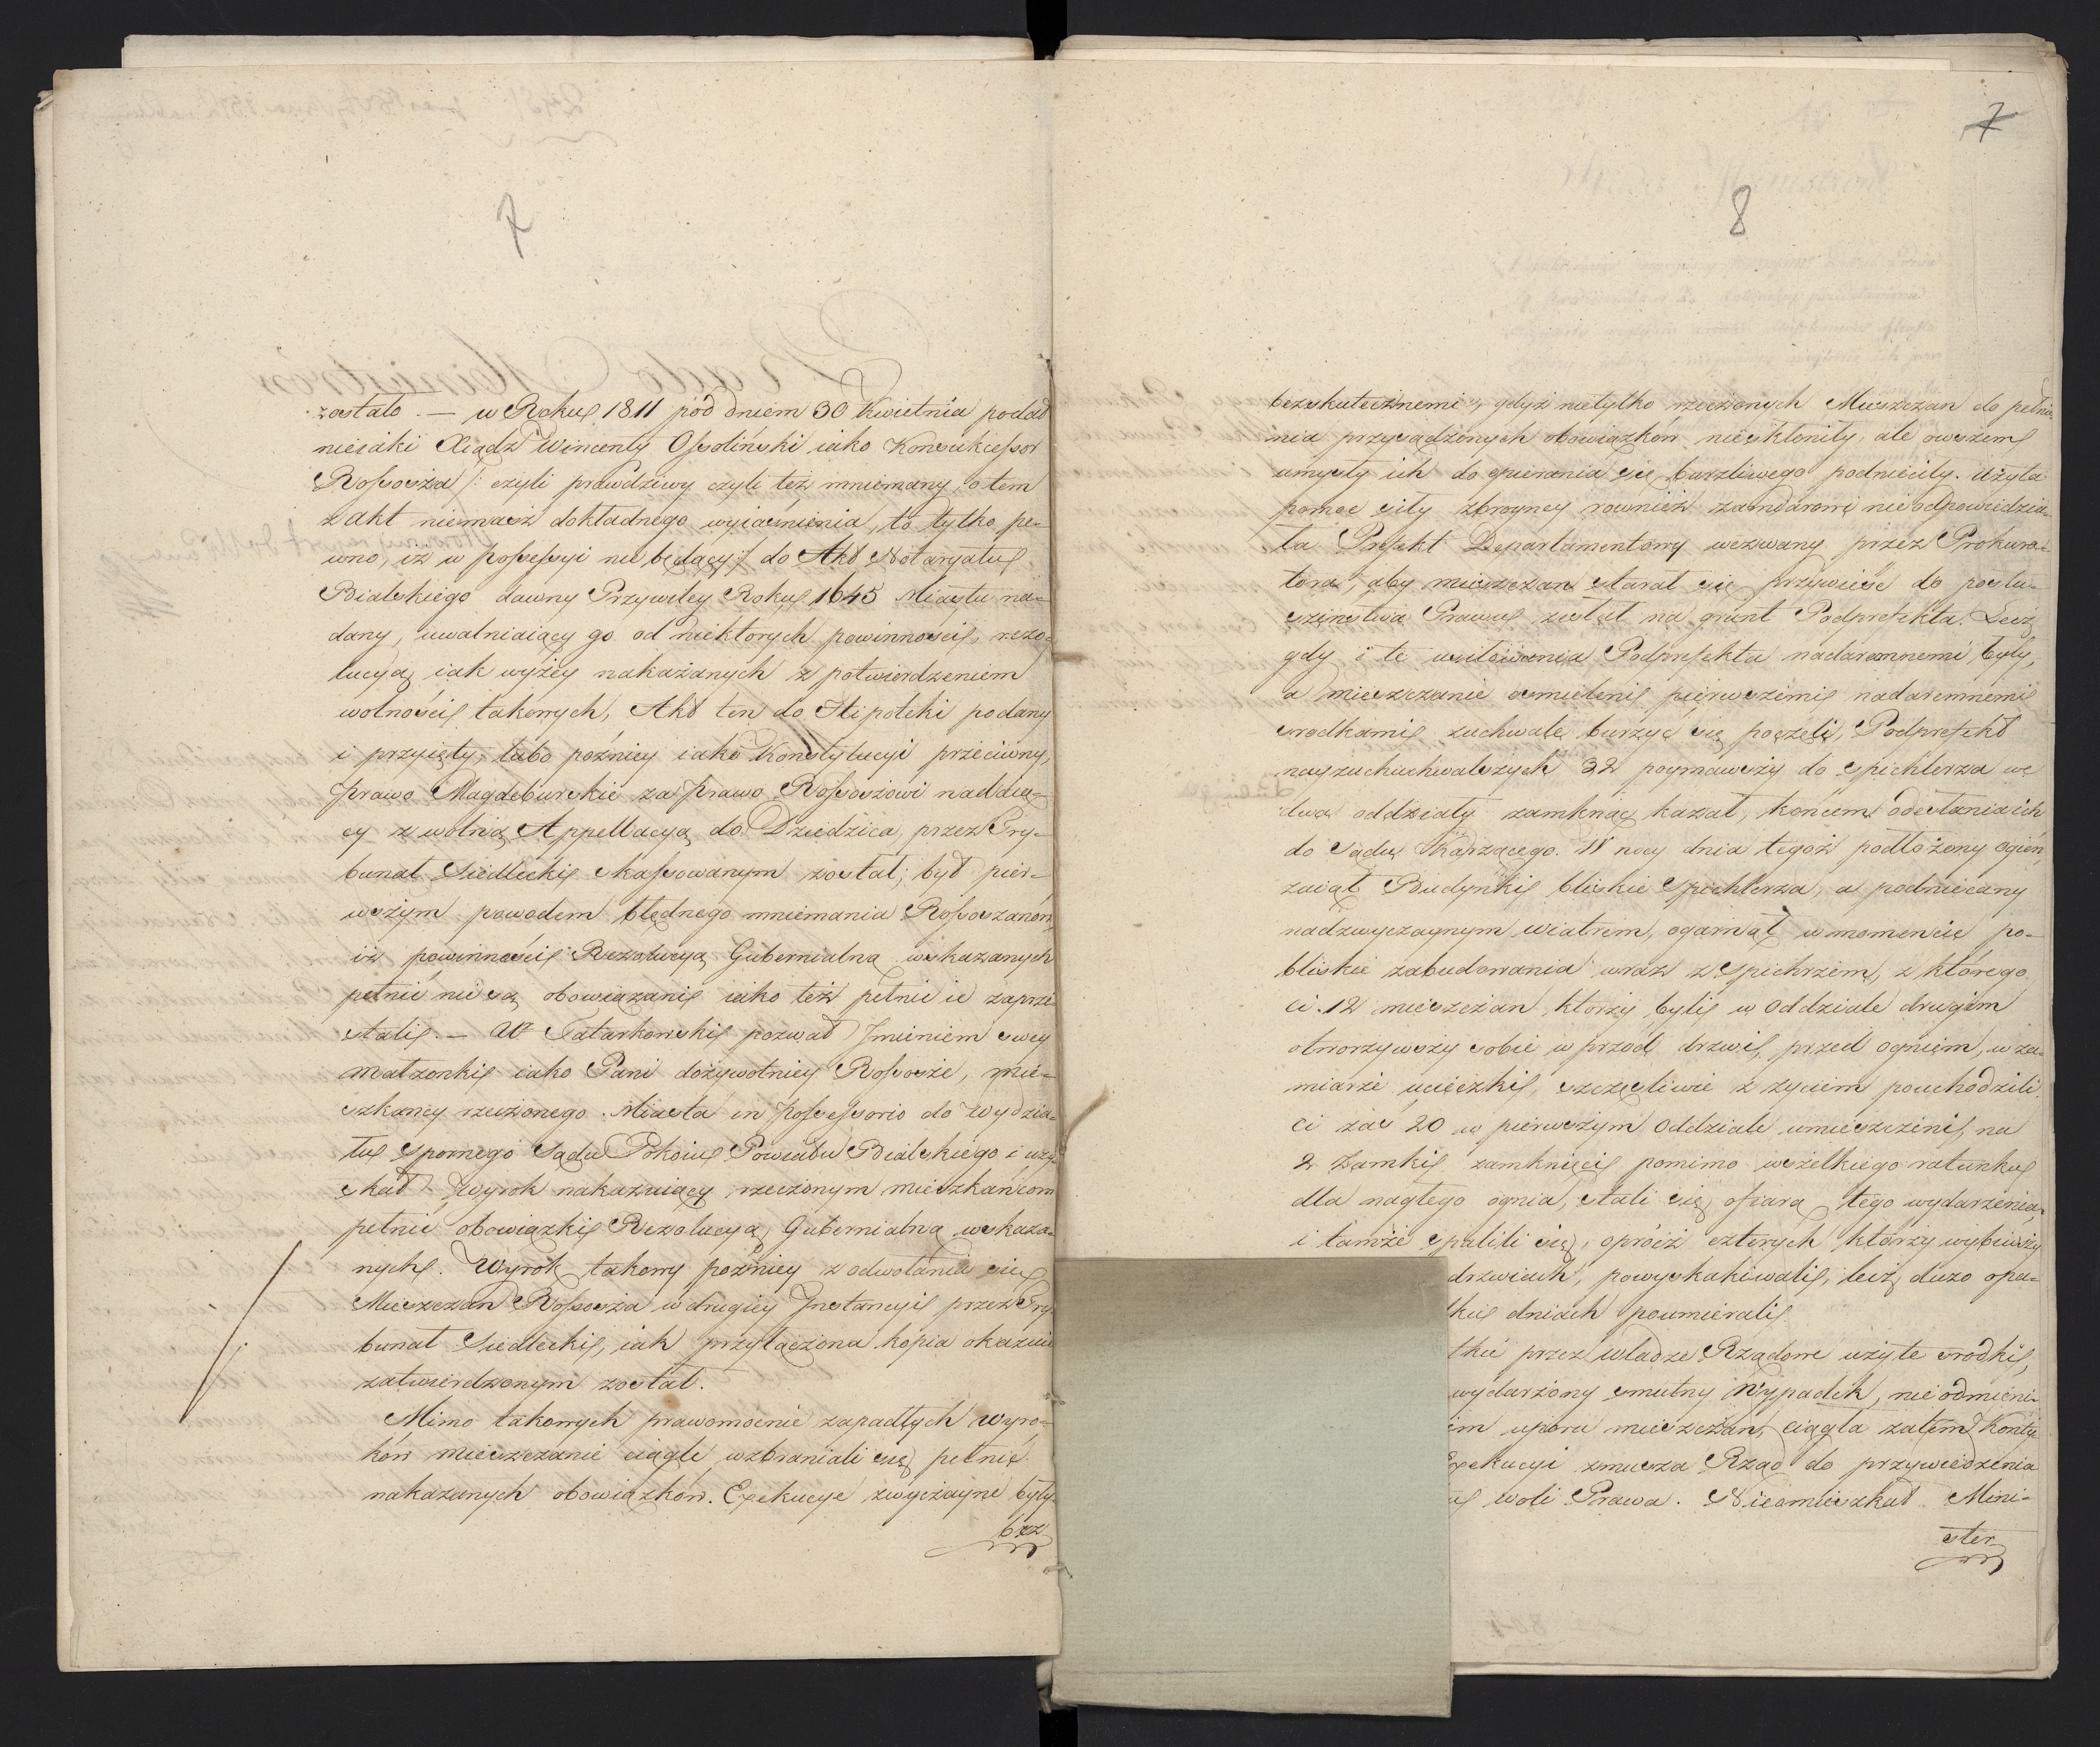 7
zostało. — w Roku 1811 pod dniem 30 Kwietnia podał
niejaki Xiądz Wincenty Ossoliński iako Konsukcessor
Rossosza /: czyli prawdziwy czyli też mniemany, o tem
z akt niemasz dokładnego wyiaśnienia, to tylko pe-
wno, iż w possessyi nie będący :/ do Akt Notaryatu
Bialskiego dawny Przywiley Roku 1645 Miastu na-
dany, uwalniaiący go od niektorych powinności, rezo-
lucyą iak wyżey nakazanych z potwierdzeniem
wolności takowych, Akt ten do Hipoteki podany
i przyięty, lubo poźniey iako Konstytucyi przeciwny,
prawo Magdeburskie za prawo Rossoszowi nadaią-
cy z wolną Appellacyą do Dziedzica, przez Try-
bunał Siedlecki skassowanym został; był pier-
wszym powodem błędnego mniemania Rossoszanow,
iż powinności Rezolucyą Gubernialną wskazanych
pełnić nie są obowiązani iako też pełnić ie zaprze
stali. — Wt Tatarkowski pozwał Imieniem swey
małzonki iako Pani dożywotniey Rossosze, mie-
szkancy rzeczonego Miasta in possessorio do Wydzia-
łu Spornego Sądu Pokoiu Powiatu Bialskiego i uzy-
skał Wyrok nakazuiący rzeczonym mieszkańcom
pełnić obowiązki Rezolucyą Gubernialną wskaza-
nych. Wyrok takowy poźniey z odwołania się
Mieszczan Rossosza w drugiey Instancyi przez Try
bunał Siedlecki, iak przyłączona kopia okazuie
zatwierdzonym został.
Mimo takowych prawomocnie zapadłych Wyro-
kow mieszczanie ciągle wzbraniali się pełnić
nakazanych obowiązkow. Exekucye zwyczayne były
bez
7
8
bezskutecznemi, gdyż nietylko rzeczonych Mieszczan do pełnie
nia przysądzonych obowiązkow niesklonily, ale owszem
umysły ich do opierania się burzliwego podnieciły. Użyta
pomoc siły zbroyney rownież zamiarowi nieodpowiedzia-
ła Prefekt Departamentowy wezwany przez Prokura-
tora, aby mieszczan starał się przywieść do posłu-
szeństwa Prawu zesłał na grunt Podprefekta. Lecz
gdy i te usiłowania Podprefekta nadaremnemi były,
a mieszczanie osmieleni pierwszemi nadaremnemi
srodkami zuchwale burzyć się poczęli, Podprefekt
nayzuchwalszych 32 poymawszy do spichlerza we
dwa oddziały zamknąć kazał, końcem odesłania ich
do Sądu Karzącego. W nocy dnia tegoż podłożony ogień,
zaiął Budynki bliskie Spichlerza, a podniecany
nadzwyczaynym wiatrem, ogarnął w momencie po-
bliskie zabudowania wraz z Spichrzem, z którego
ci 12 mieszczan, ktorzy byli w oddziale drugim
otworzywszy sobie w przód drzwi, przed ogniem, w za-
miarze ucieczki, szczęśliwie z życiem pouchodzili
ci zaś 20 w pierwszym oddziale umieszczeni, na
2 Zamki zamknięci pomimo wszelkiego ratunku
dla nagłego ognia, stali się ofiarą tego wydarzenia,
i tamże spalili się, oprócz czterych którzy wybiwszy
drzwiach, powyskakiwali, lecz dużo opa-
kie dniach poumierali.
tkie przez władze Rządowe użyte srodki,
wydarzony smutny Wypadek, nie odmieni-
im uporu mieszczan, ciągła zatem Konty-
Exekucyi zmusza Rząd do przywiedzenia
woli Prawa. Nieomieszkał Mini-
ster